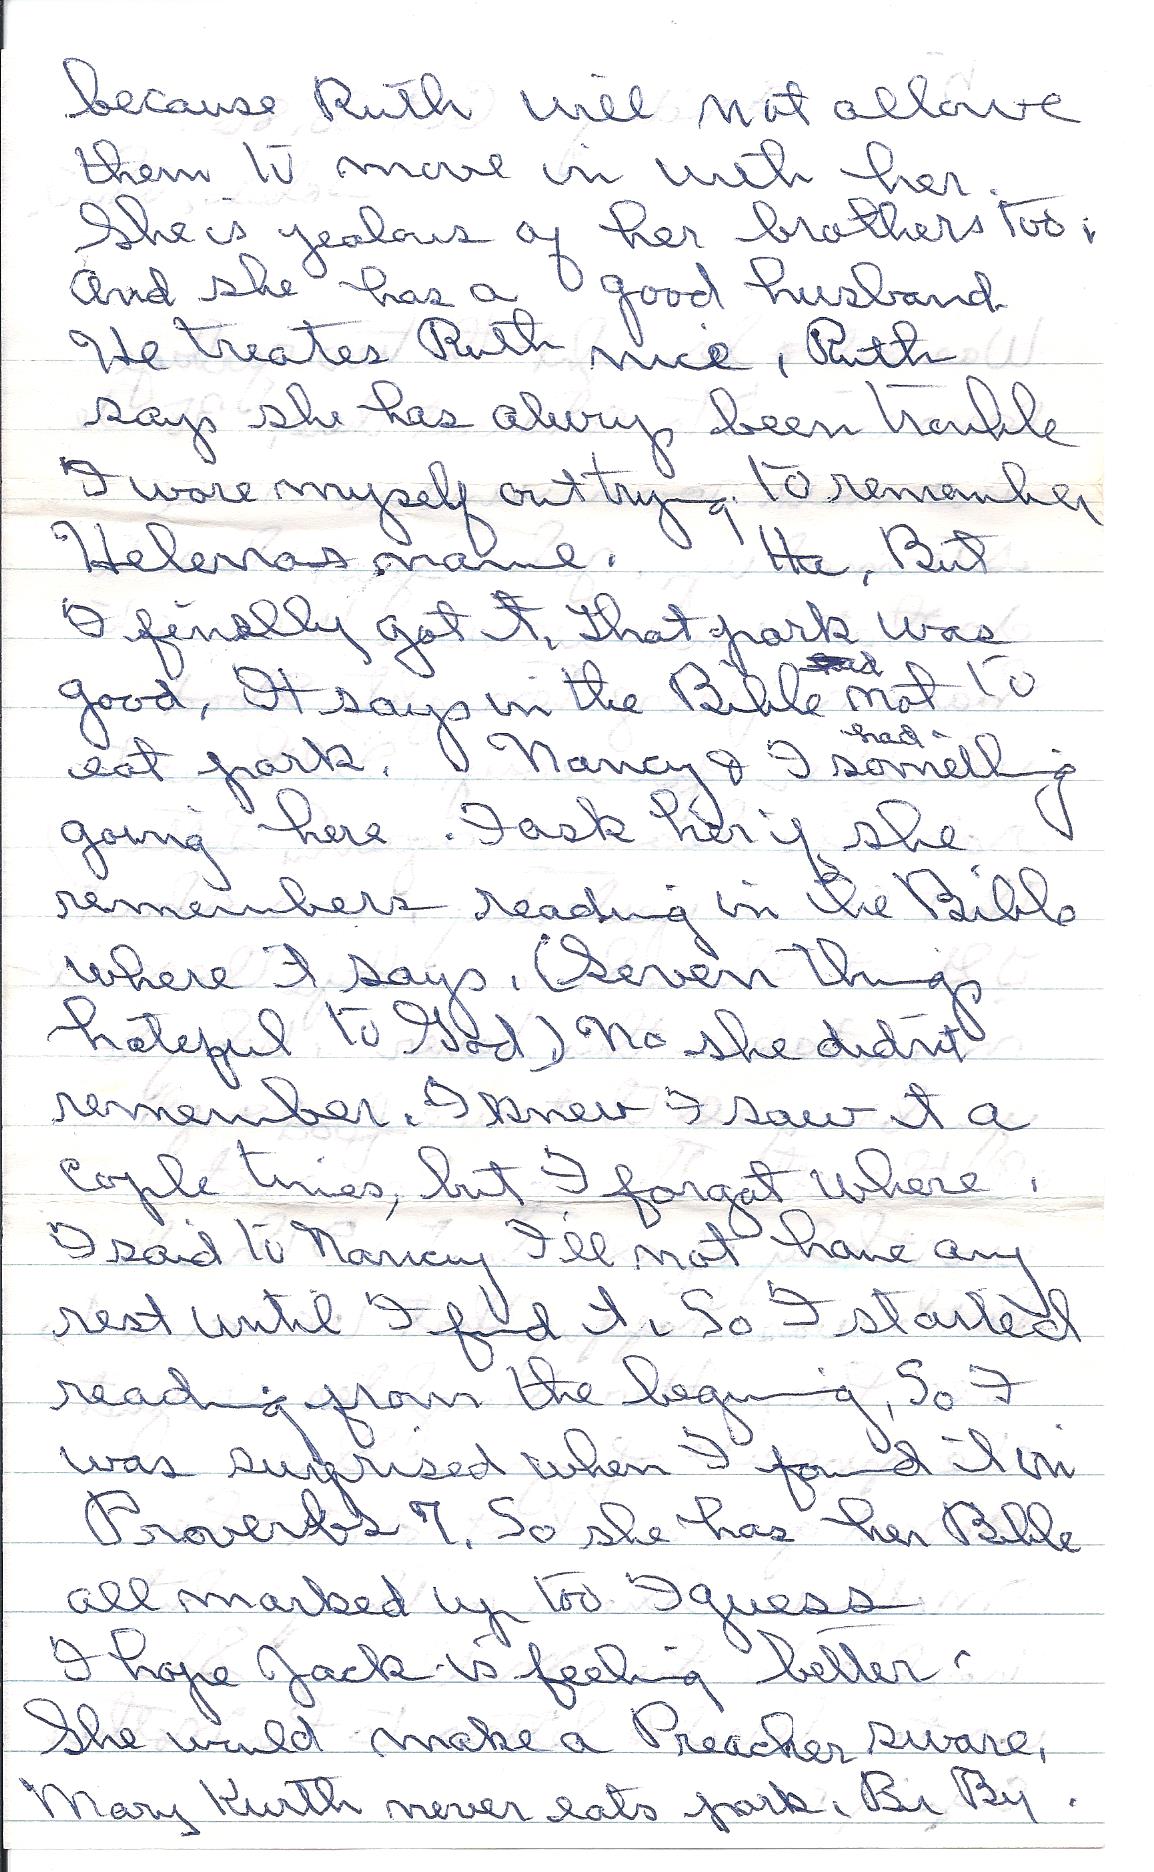 because Ruth will not allowe
them to move in with her.
She is yealous of her brothers too.
And she has a good husband
He treates Ruth nice, Ruth
says she has alwys been trouble
I wore myself out trying to remember
Helenas name. Ha, But
I finally got it, that pork was
good, It says in the Bible not to
eat pork. Nancy & I had something
going here. I ask her if she
remembers reading in the Bible
where it says, (Seven things
hateful to God) No she didn't
remember. I knew I saw it a
cople times, but I forgot where.
I said to Nancy I'll not have any
rest until I find it. So I started
reading from the begining, So I
was surprised when I found it in
Proverbs 7. So she has her Bible
all marked up too I guess
I hope Jack is feeling better.
She would make a Preacher sware.
Mary Kurth never eats pork. Bi By.